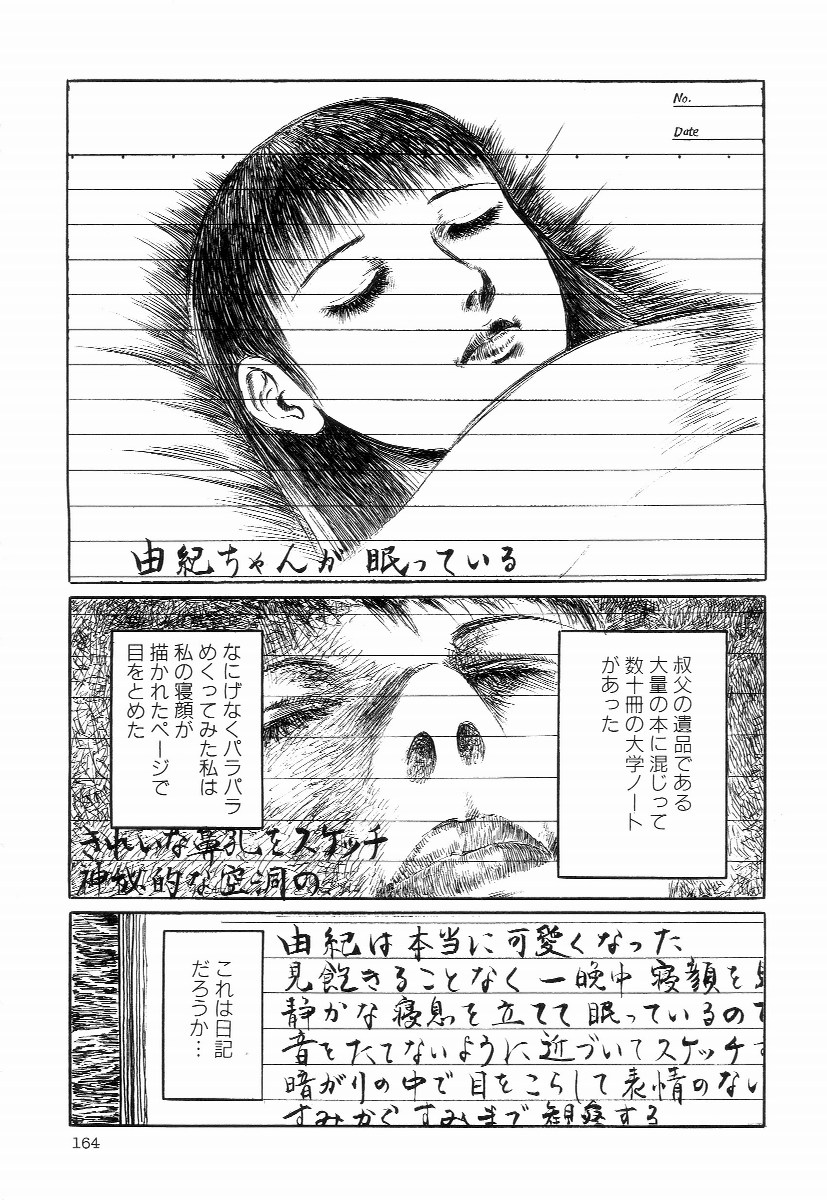 No.
Date
由紀ちゃんが 眠っている
叔父の遺品である
大量の本に混じって
数十冊の大学ノート
があった
なにげなくパラパラ
めくってみた私は
私の寝顔が
描かれたページで
目をとめた
きれいな鼻孔をスケッチ
神秘的な空洞の
これは日記
だろうか…
由紀は本当に可愛くなった
見飽きることなく 一晩中 寝顔を見
静かな寝息を立てて 眠っているので
音をたてないように近づいてスケッチす
暗がりの中で目をこらして表情のない
すみからすみまで観察する
164